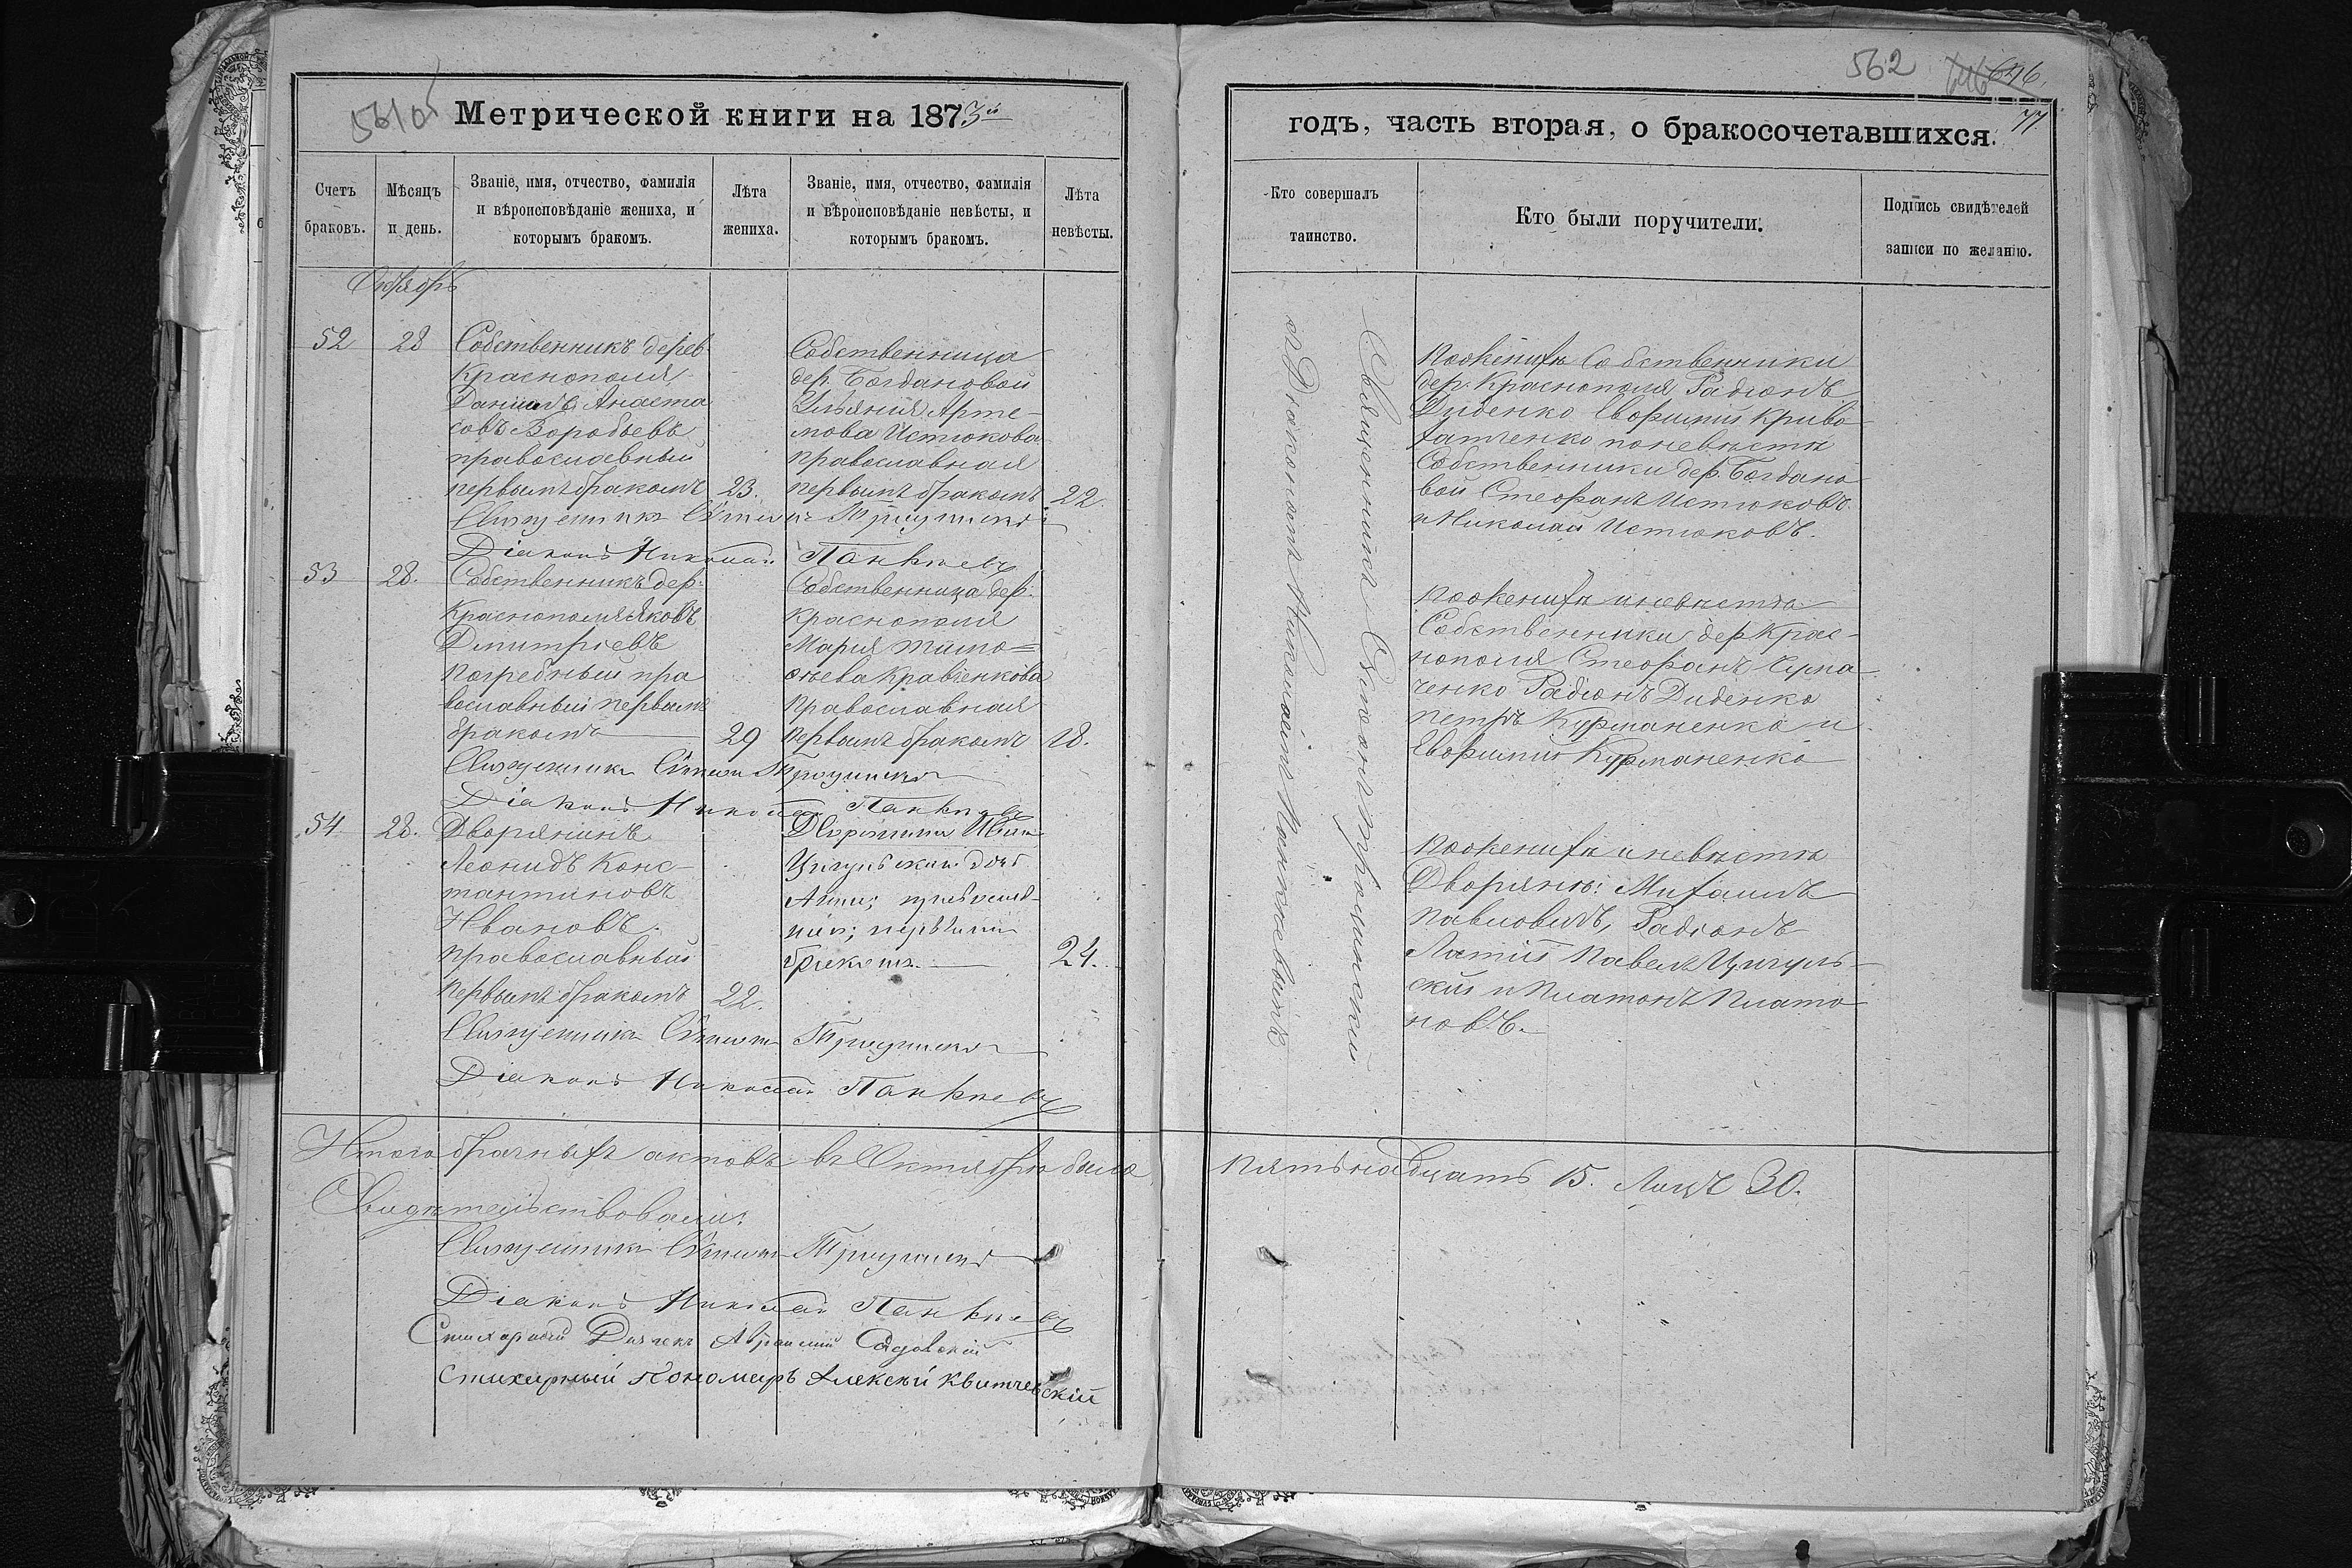 561 об
Метрической книги на 1873й
Счетъ браковъ.
Мѣсяцъ и день.
Званіе, имя, отчество, фамилія и вѣроисповѣданіе жениха, и которымъ бракомъ.
Лѣта жениха.
Званіе, имя, отчество, фамилія и вѣроисповѣданіе невѣсты, и которымъ бракомъ.
Лѣта невѣсты.
Октябрь
52
28
Собственникъ дерев.
Краснополя
Даниилъ Анаста
совъ Воробьевъ
православный
первымъ бракомъ
23.
Собственница
дер. Богдановой
Ульянія Арте-
мова Истюкова
православная
первымъ бракомъ
22.
Священникъ Симеонъ
Діаконъ Николай
53
28.
Собственникъ дер.
Краснополя Яковъ
Дмитріевъ
Погребный пра
вославный первымъ
бракомъ
29
Собственница дер.
Краснополя
Марія Тимо=
ѳѣева Кравченкова
Православная
первымъ бракомъ
18.
Священникъ Симеонъ
Діаконъ Николай
54.
28.
Дворянинъ
Леонидъ Конс-
тантиновъ
Ивановъ.
православный
первымъ бракомъ
22.
Цигульскаго дочь
Анна; православ-
ная; первымъ
бракомъ.
24.
Священникъ Симеонъ
Діаконъ Николай
Итого брачныхъ актовъ въ Октябрѣ было
Свидѣтельствовали:
Священникъ Симеонъ
Діаконъ Николай
Стихарный Дьячекъ Садовскій
Стихарный Пономарь Алексѣй Квитчевскій
562
646.
77.
годъ, часть вторая, о бракосочетавшихся.
Кто совершалъ таинство.
Кто были поручители.
Подпись свидѣтелей записи по желанію.
Священникъ Симеонъ
съ Діакономъ Николаемъ
По женихѣ Собственники
дер. Краснополя Радіонъ
Диденко Евфимій Криво
хатченко по невѣстѣ
Собственники дер. Богдано
вой Стефанъ Истюковъ
и Николай Истюковъ.
По женихѣ и невѣстѣ
Собственники дер Крас-
нополя Стефанъ
ченко Радіонъ Диденко
Петръ Курманенко и
Евфимій Курманенко
По женихѣ и невѣстѣ
Дворяне: Михаилъ
Павловичъ, Радіонъ
Латій Павелъ Цигуль-
скій и Платонъ Плато
новъ.
пятьнадцать 15. Лицъ 30.